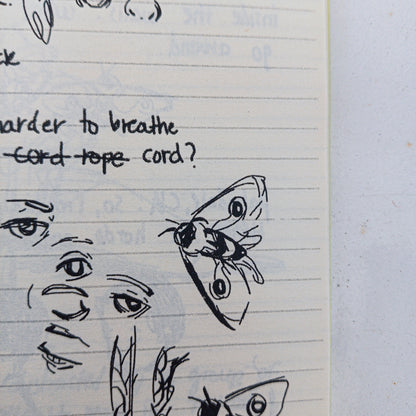 ck
harder to breathe
cord rope cord?